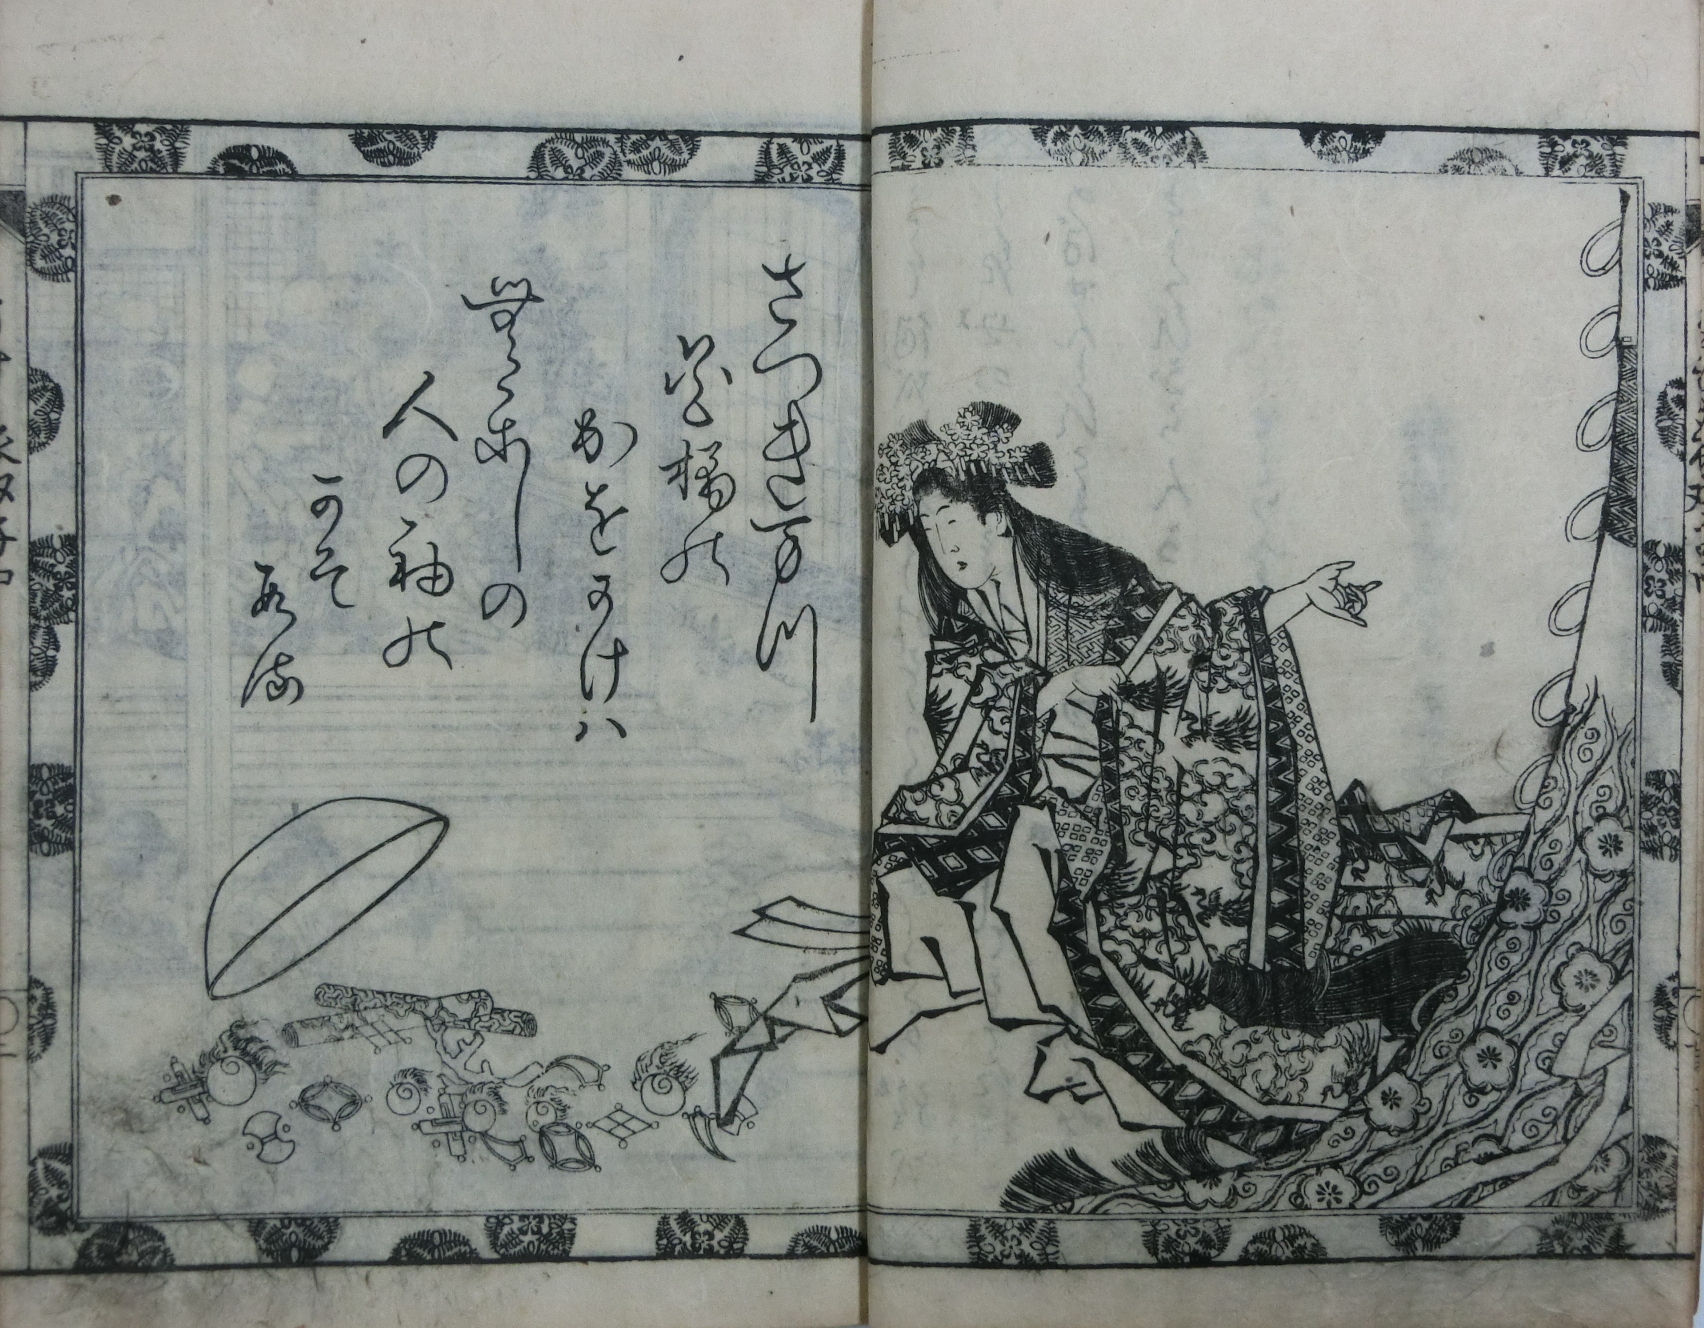 さつきまつ
花橘の
かをかけは
むかしの
人の袖の
かそ
する